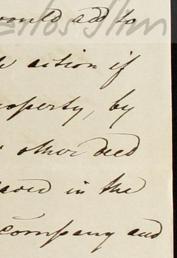 would add to
action if
property, by
other deed
in the
company and